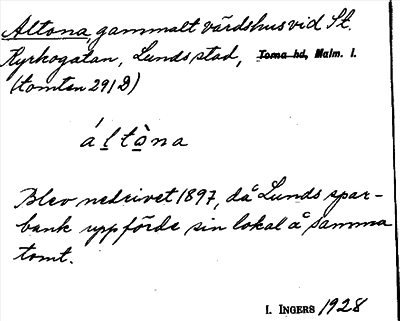 Altona, gammalt värdshus vid St.
Kyrkogatan, Lunds stad, Torna hd, Malm. l.
(tomten 291 D)
áltòna
Blev nedrivet 1897, då Lunds spar-
bank uppförde sin lokal å samma
tomt.
I. INGERS 1928